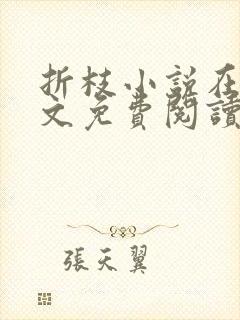 折枝小説在
文免費閱讀
張天翼